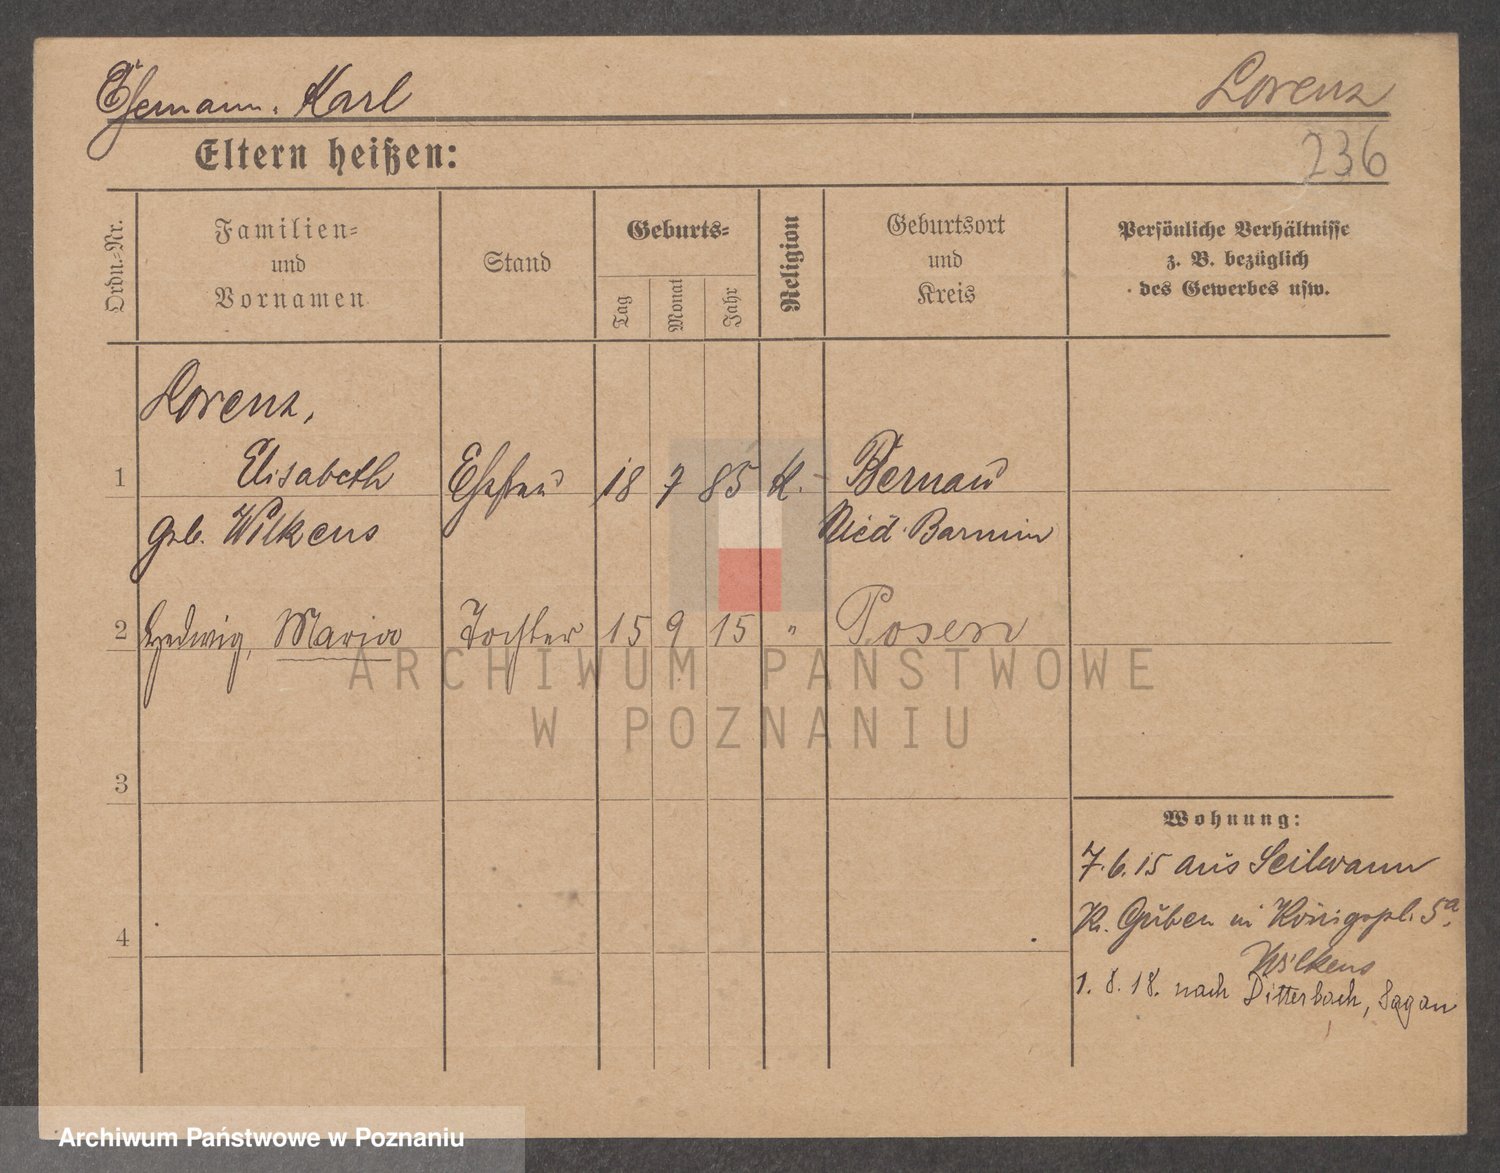 Ehemann. Karl
Lorenz
236
Eltern heißen:
Ordn.-Nr.
Familien- und Vornamen
Stand
Geburts-
Tag
Monat
Jahr
Religion
Geburtsort und Kreis
Persönliche Verhältnisse
z. B. bezüglich
des Gewerbes usw.
Lorenz,
1 Elisabeth Ehefrau 18 7 85 K. - Bernau
geb. Wilkens Nied. Barnim
2 Hedwig, Maria Tochter 15 9 15 " Posen
3
4
Wohnung:
7.6.15 aus
Kr. Guben in Königspl. 5a.
Wilkens
1. 8. 18. nach Ditterbach, Sagan
ARCHIWUM PAŃSTWOWE
W POZNANIU
Archiwum Państwowe w Poznaniu